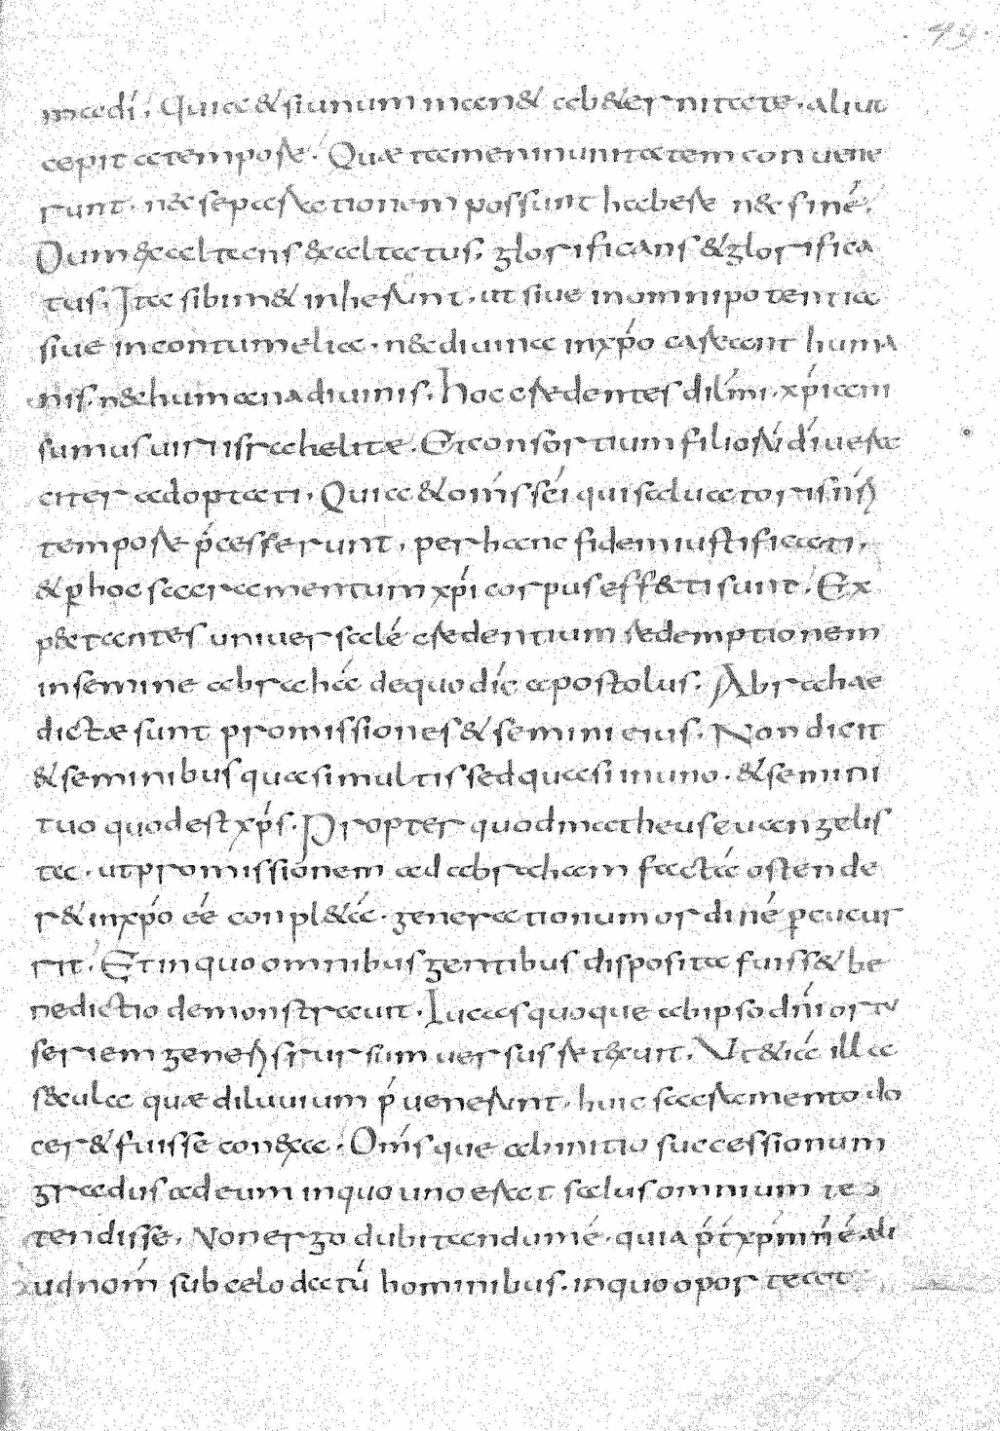 49.
madi. Quia & si unum man& ab &ernitate. aliut
cepit a tempore. Quæ tamen in unitatem convene
runt. nec separationem possunt habere nec finē.
Dum &altans &altatus, glorificans & glorifica
tus. Ita sibim& inherunt. ut sive in omnipotentia
sive in contumelia. nec divina in xp̄o careant huma
nis. nec humana divinis. Hoc credentes dil̄mi. xp̄iani
sumus viri israhelitæ. Et consortium filioꝝ dī vera
citer adoptati. Quia & om̄s sc̄i qui salvatoris n̄rī
tempore p̄cesserunt. per hanc fidem iustificati.
& ꝑ hoc sacramentum xp̄i corpus effecti sunt. Ex
pectantes universalē credentium redemptionem
in semine abrahā de quo dīc apostolus. Abrahae
dictæ sunt promissiones & semini eius. Non dicit
& seminibus quasi multis sed quasi in uno. & semini
tuo quod est xp̄s. Propter quod matheus evangelis
ta. ut promissionem ad abraham factā ostende
r& in xp̄o eē conpl&ā. generationum ordinē ꝑcucur
rit. Et in quo omnibus gentibus disposita fuiss& be
nedictio demonstravit. Lucas quoque ab ipso dn̄i ortu
seriem generis rursum versus retexuit. Ut & iā illa
secula quæ diluvium p̄venerunt. huic sacramento do
cer& fuisse conexa. Om̄sque ab initio successionum
gradus ad eum in quo uno erat salus omnium te
tendisse. Non ergo dubitandum ē. quia p̄t xp̄m n̄ ē ali
ud nom̄ sub celo datū hominibus. in quo oporteat